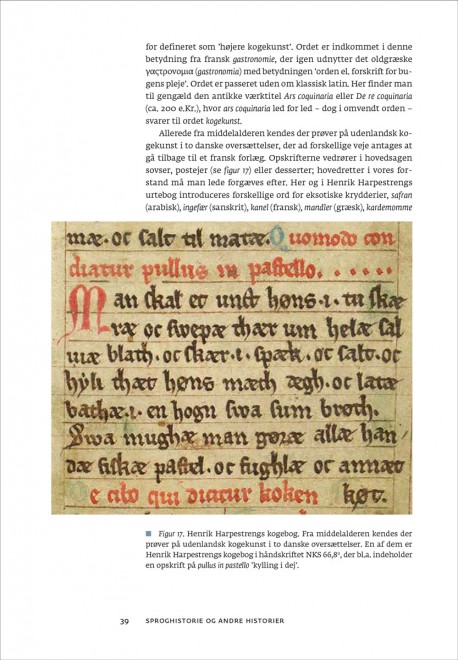 for defineret som ‘højere kogekunst’. Ordet er indkommet i denne
betydning fra fransk gastronomie, der igen udnytter det oldgræske
γαςτρονομια (gastronomia) med betydningen ‘orden el. forskrift for bu-
gens pleje’. Ordet er passeret uden om classisk latin. Her finder man
til gengæld den antikke værktitel Ars coquinaria eller De re coquinaria
(ca. 200 e.Kr.), hvor ars coquinaria led for led – dog i omvendt orden –
svarer til ordet kogekunst.
Allerede fra middelalderen kendes der prøver på udenlandsk ko-
gekunst i to danske oversættelser, der ad forskellige veje antages at
gå tilbage til et fransk forlæg. Opskrifterne vedrører i hovedsagen
sovser, postejer (se figur 17) eller desserter; hovedretter i vores for-
stand må man lede forgæves efter. Her og i Henrik Harpestrengs
urtebog introduceres forskellige ord for eksotiske krydderier, safran
(arabisk), ingefær (sanskrit), kanel (fransk), mandler (græsk), kardemomme
mæ. oc salt til matæ. Quomodo con
diatur pullus in pastello. . . . . .
Man skal et unct høns .i. tu skæ
ræ oc swepæ thær um helæ sal
uiæ blath. oc skær .i. spæk. oc salt. oc
hyli thæt høns mæth degh. oc latæ
bathæ .i. en hogn swa sum brøth.
Swa mughæ man gøræ allæ han
dæ fiskæ pastel. oc fughlæ oc annæt
køt.
■ Figur 17. Henrik Harpestrengs kogebog. Fra middelalderen kendes der
prøver på udenlandsk kogekunst i to danske oversættelser. En af dem er
Henrik Harpestrengs kogebog i håndskriftet NKS 66,8º, der bl.a. indeholder
en opskrift på pullus in pastello ‘kylling i dej’.
39 SPROGHISTORIE OG ANDRE HISTORIER